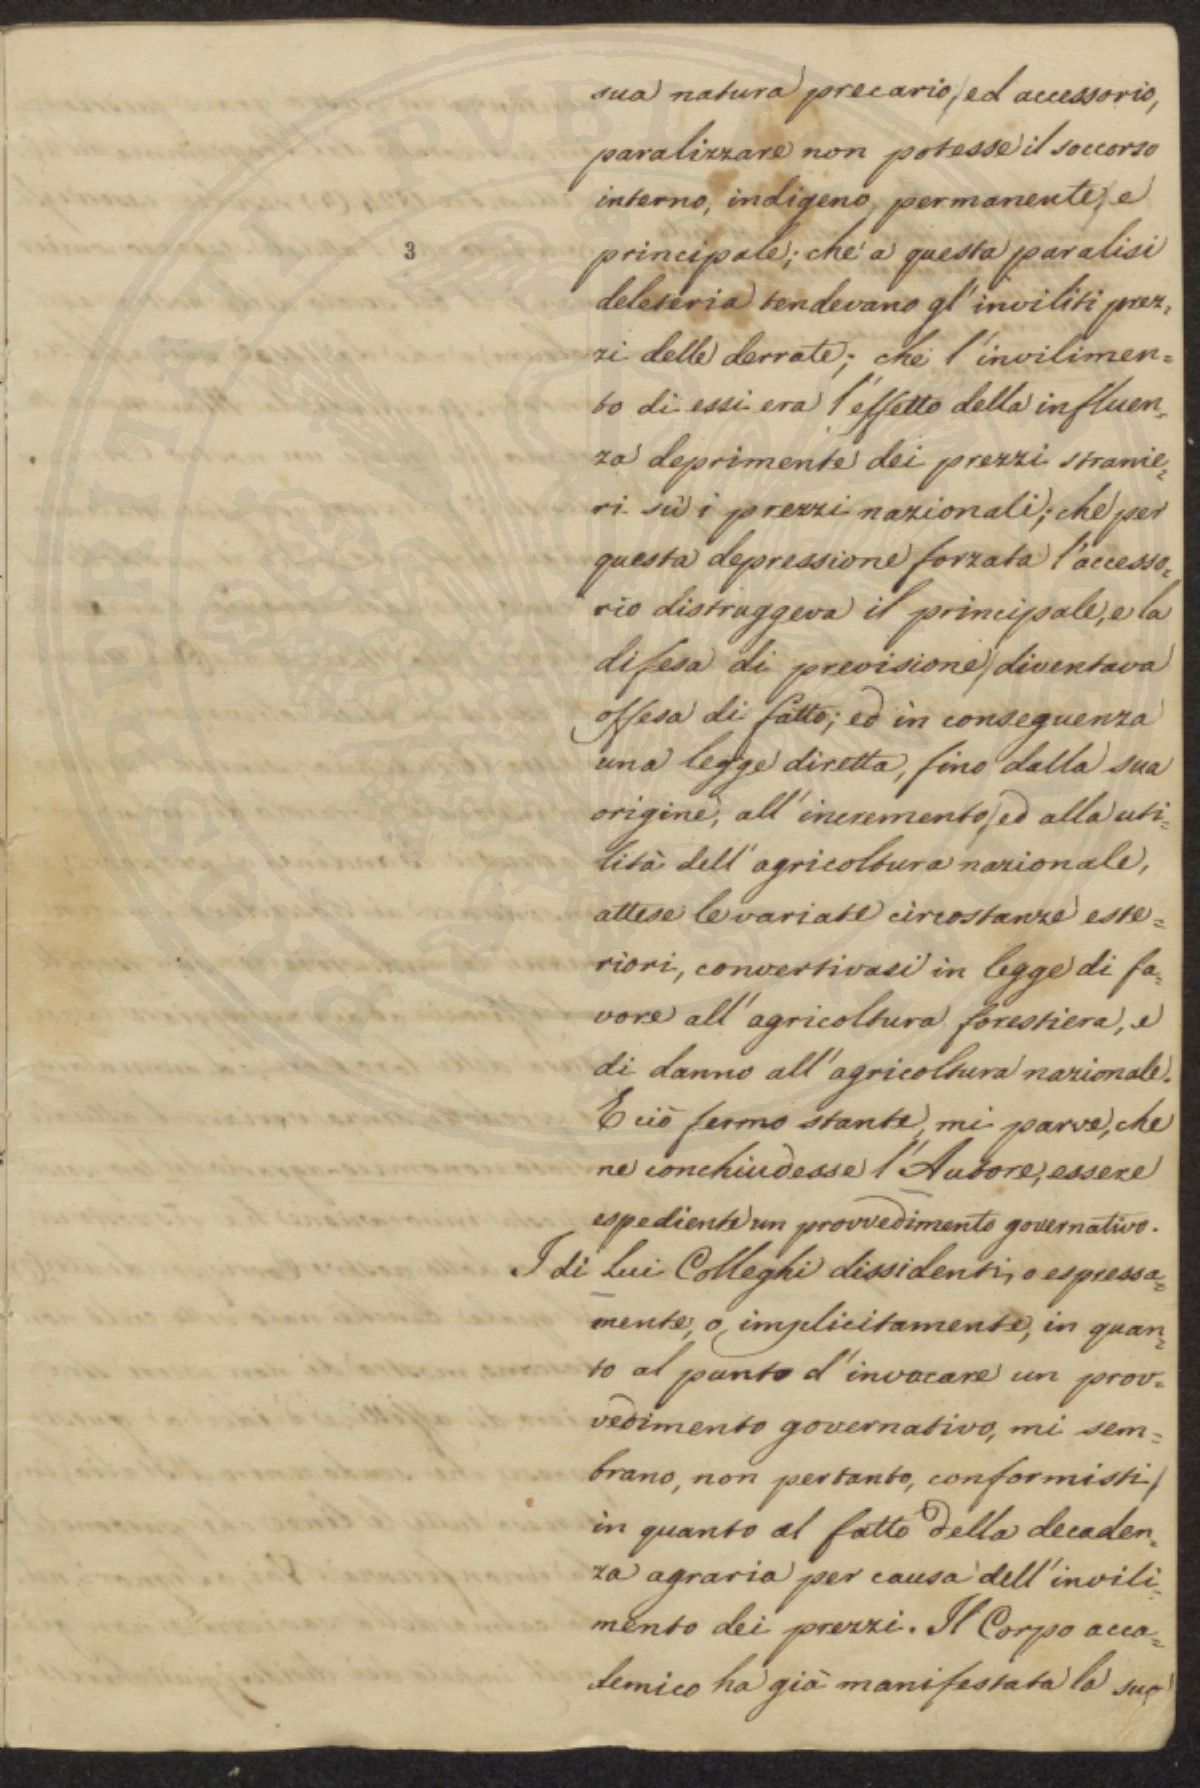 sua natura precario, ed accessorio,
paralizzare non potesse il soccorso
interno, indigeno, permanente, e
3
principale; che a questa paralisi
deleteria tendevano gl'inviliti prez=
zi delle derrate; che l'invilimen=
to di essi era l'effetto della influen=
za deprimente dei prezzi stranie=
ri sù i prezzi nazionali; che per
questa depressione forzata l'accesso=
rio distruggeva il principale, e la
difesa di previsione, diventava
offesa di fatto; ed in conseguenza
una legge diretta, fino dalla sua
origine, all'incremento, ed alla uti=
lità dell'agricoltura nazionale,
attese le variate circostanze este=
riori, convertivasi in legge di fa=
vore all'agricoltura forestiera, e
di danno all'agricoltura nazionale.
E ciò fermo stante, mi parve, che
ne conchiudesse l'Autore, essere
espediente un provvedimento governativo.
I di lui Colleghi dissidenti, o espressa=
mente, o implicitamente, in quan=
to al punto d'invocare un prov=
vedimento governativo, mi sem=
brano, non pertanto, conformisti,
in quanto al fatto della decaden=
za agraria per causa dell'invili=
mento dei prezzi. Il Corpo acca=
demico ha già manifestata la sua